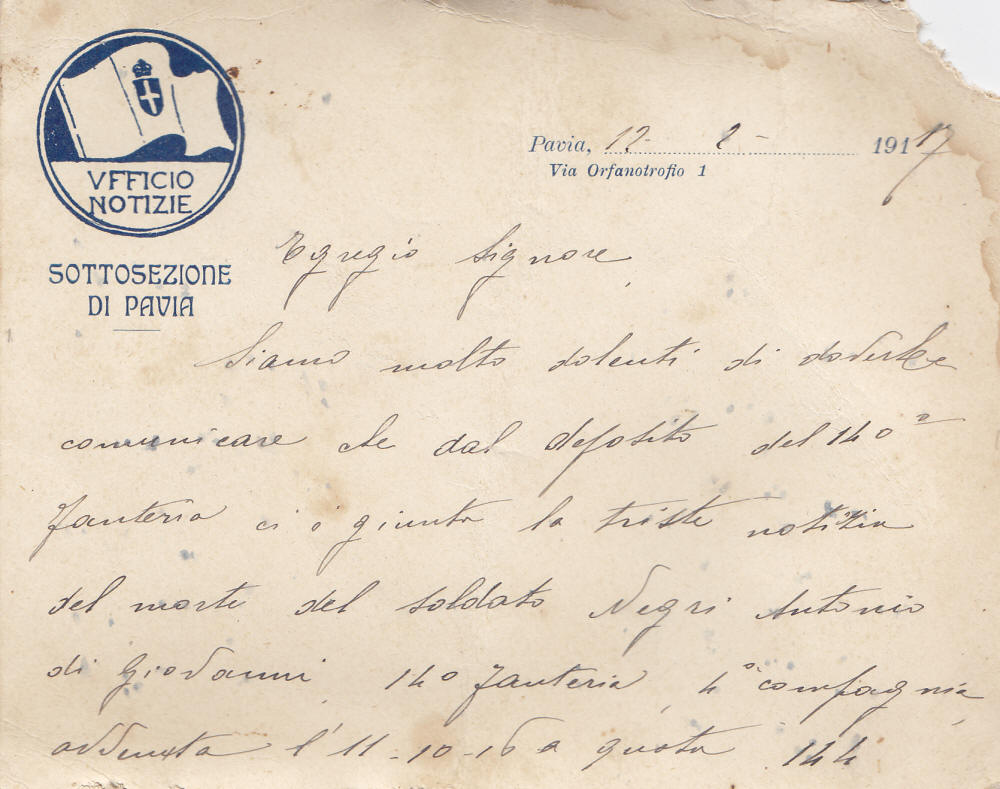 VFFICIO
NOTIZIE
SOTTOSEZIONE
DI PAVIA
Pavia, 12- 2- 191 17
Via Orfanotrofio 1
Egregio Signore,
Siamo molto dolenti di doverle
comunicare che dal deposito del 140º
fanteria ci è giunta la triste notizia
del morte del soldato Negri Antonio
di Giovanni, 140 fanteria, 4º compagnia,
avvenuta l'11-10-16 a quota 144